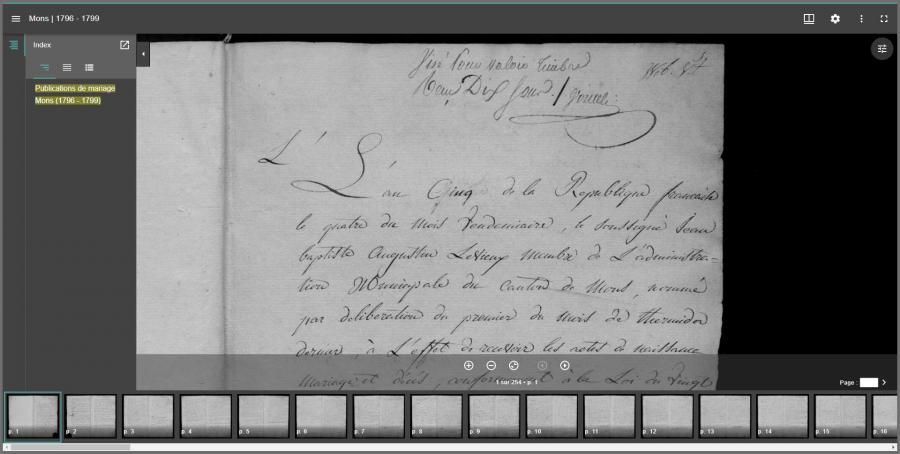 Mons | 1796 - 1799
Index
Publications de mariage
Mons (1796 - 1799)
Visé pour valoir timbre
L'
L'an Cinq de la Republique francaise
le quatre du Mois Vendemiaire, le soussigné Jean
baptiste Augustin Membre de L'administra-
tion Municipale du Canton de Mons, nommé
par deliberation du premier du mois de thermidor
dernier, à L'effet de recevoir les actes de naissance
Mariage et décés, conformement à la Loi du Vingt
1 sur 254 • p. 1
Page :
p. 1
p. 2
p. 3
p. 4
p. 5
p. 6
p. 7
p. 8
p. 9
p. 10
p. 11
p. 12
p. 13
p. 14
p. 15
p. 16